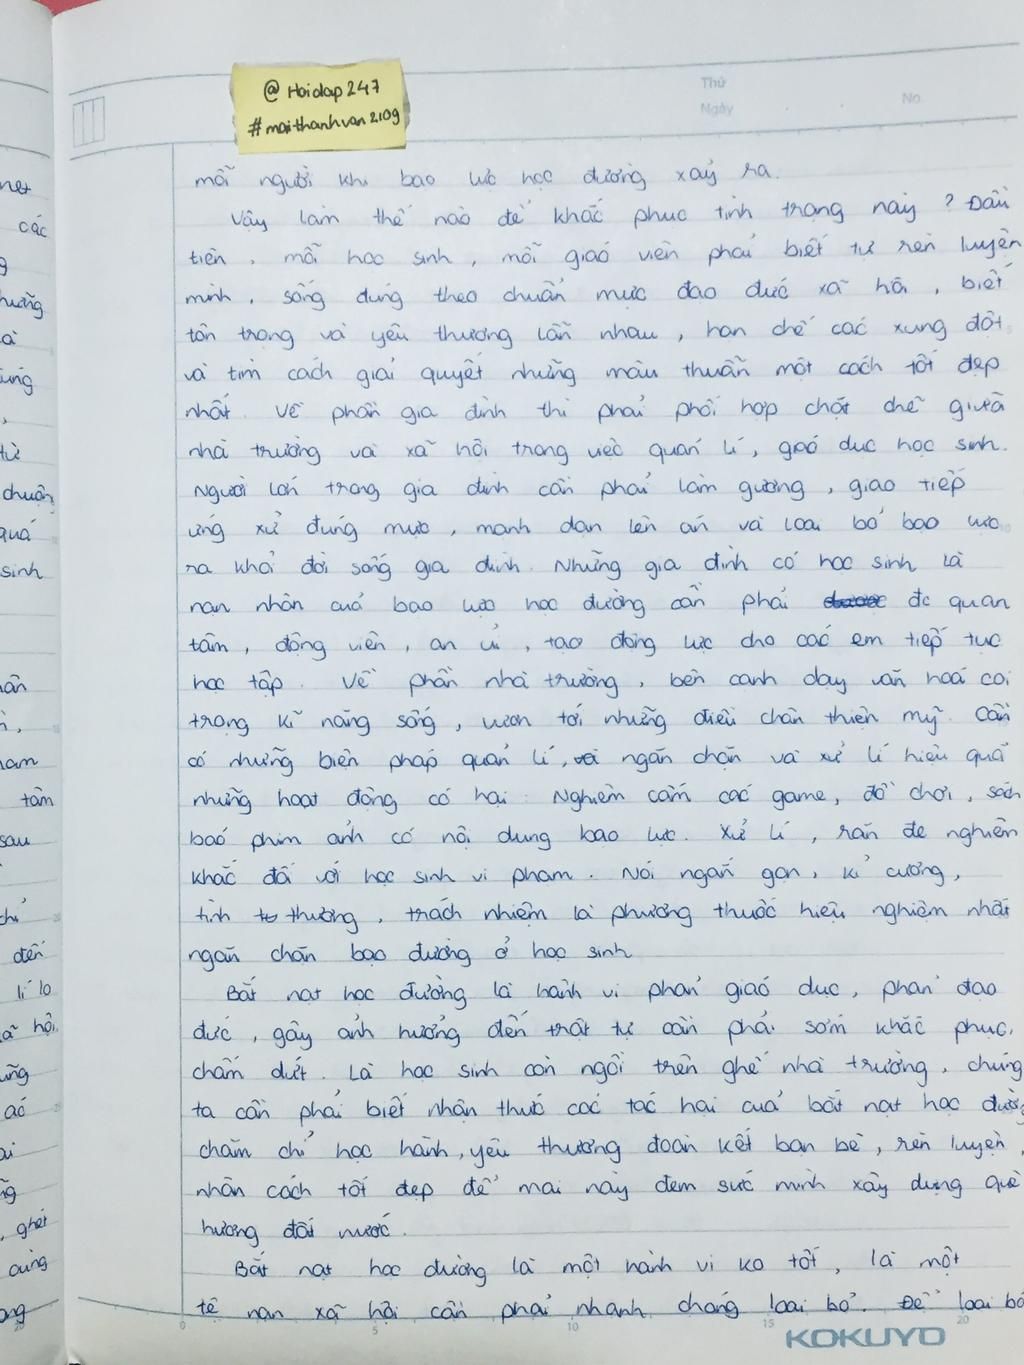 @Hoidap247
#maithanhvan2109
Thứ
Ngày
No.
mỗi người khi bao lực học đường xảy ra.
Vậy làm thế nào để khắc phục tình trạng này ? Đầu
tiên, mỗi học sinh, mỗi giáo viên phải biết tự rèn luyện
mình, sống đúng theo chuẩn mực đạo đức xã hội, biết
tôn trọng và yêu thương lẫn nhau, hạn chế các xung đột
và tìm cách giải quyết những mâu thuẫn một cách tốt đẹp
nhất. Về phần gia đình thì phải phối hợp chặt chẽ giữa
nhà trường và xã hội trong việc quản lí, giáo dục học sinh.
Người lớn trong gia đình cần phải làm gương, giao tiếp
ứng xử đúng mực, mạnh dạn lên án và loại bỏ bạo lực
ra khỏi đời sống gia đình. Những gia đình có học sinh là
nạn nhân của bạo lực học đường cần phải đc quan
tâm, động viên, an ủi, tạo động lực cho các em tiếp tục
học tập. Về phần nhà trường, bên cạnh dạy văn hoá coi
trọng kĩ năng sống, vươn tới những điều chân thiện mỹ. Cần
có những biện pháp quản lí, ngăn chặn và xử lí hiệu quả
những hoạt động có hại. Nghiêm cấm các game, đồ chơi, sách
báo phim ảnh có nội dung bạo lực. Xử lí, răn đe nghiêm
khắc đối với học sinh vi phạm. Nói ngắn gọn, kỉ cương,
tình thương, trách nhiệm là phương thuốc hiệu nghiệm nhất
ngăn chặn bạo đường ở học sinh
Bắt nạt học đường là hành vi phản giáo dục, phản đạo
đức, gây ảnh hưởng đến trật tự cần phải sớm khắc phục,
chấm dứt. Là học sinh còn ngồi trên ghế nhà trường, chúng
ta cần phải biết nhận thức các tác hại của bắt nạt học đường
chăm chỉ học hành, yêu thương đoàn kết bạn bè, rèn luyện,
nhân cách tốt đẹp để mai này đem sức mình xây dựng quê
hương đất nước.
Bắt nạt học đường là một hành vi ko tốt, là một
tệ nạn xã hội cần phải nhanh chóng loại bỏ. Để loại bỏ
0 5 10 15 20
KOKUYO